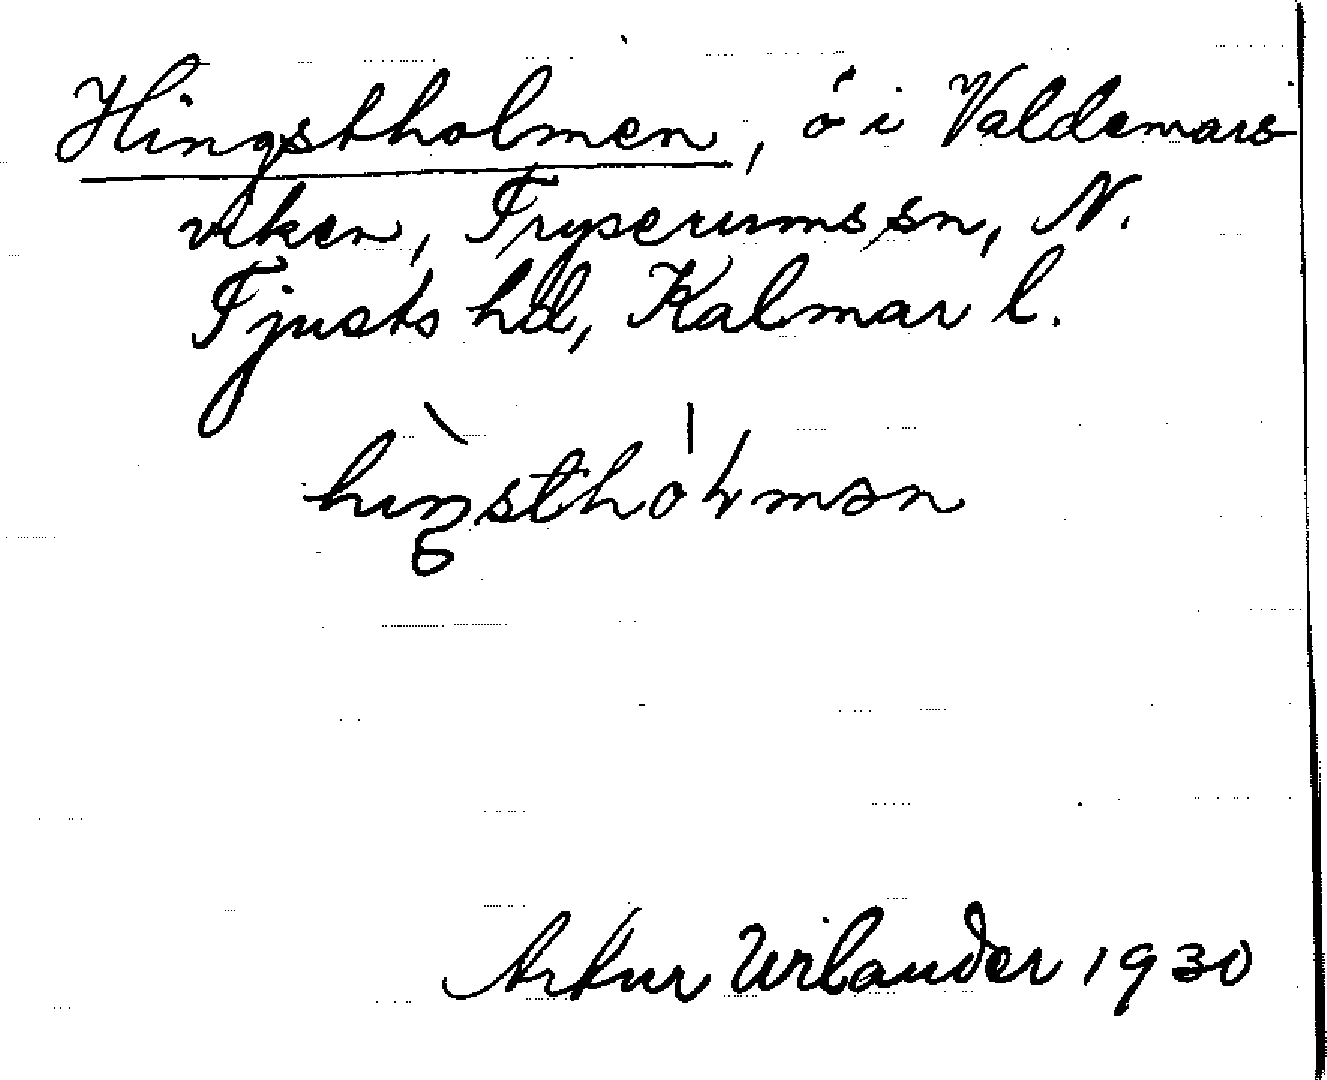 Hingstholmen, ö i Valdemars
viken, Tryserums sn, N.
Tjusts hd, Kalmar l.
Artur Wilander 1930